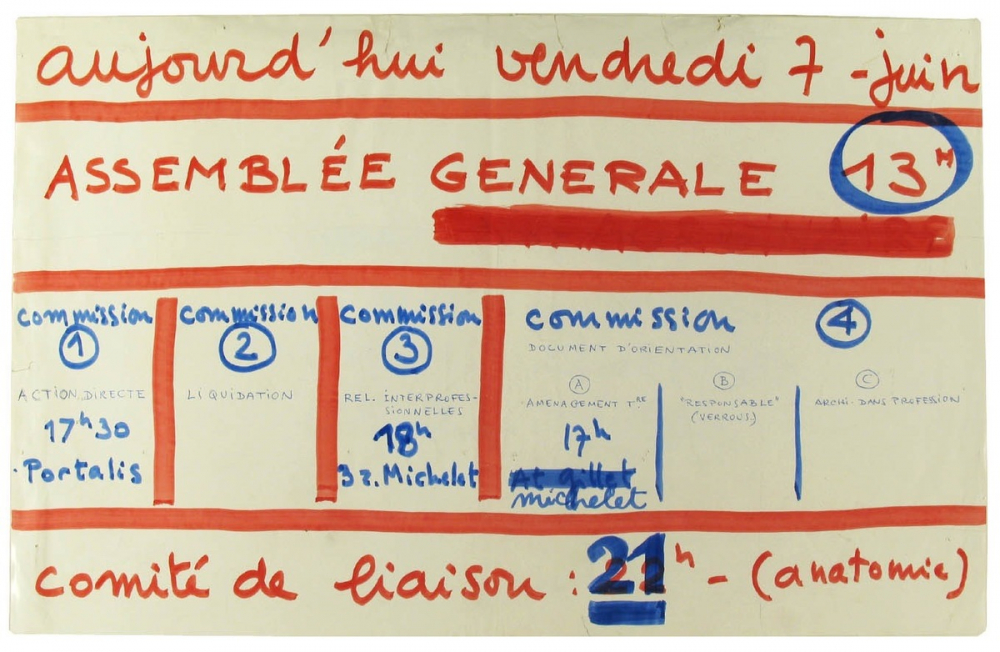 aujourd'hui vendredi 7 - juin
ASSEMBLÉE GENERALE 13H
commission
1
ACTION DIRECTE
17h30
Portalis
commission
2
LIQUIDATION
commission
3
REL. INTERPROFES-
SIONNELLES
18h
3 r. Michelet
commission 4
DOCUMENT D'ORIENTATION
A
AMENAGEMENT TRE
17h
At gillet
michelet
B
"RESPONSABLE"
(VERROUS)
C
ARCHI. DANS PROFESSION
comité de liaison : 21h - (anatomie)